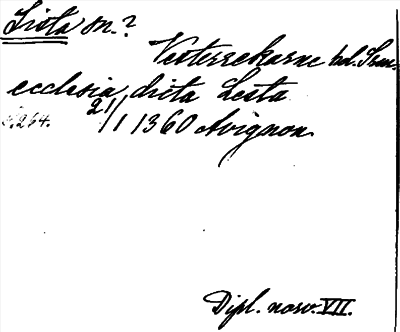 Lista sn.?
Vesterrekarne hd. Srm.
ecclesia dicta Lesta
s. 264. 21/1 1360 Avignon
Dipl. norv. VII.